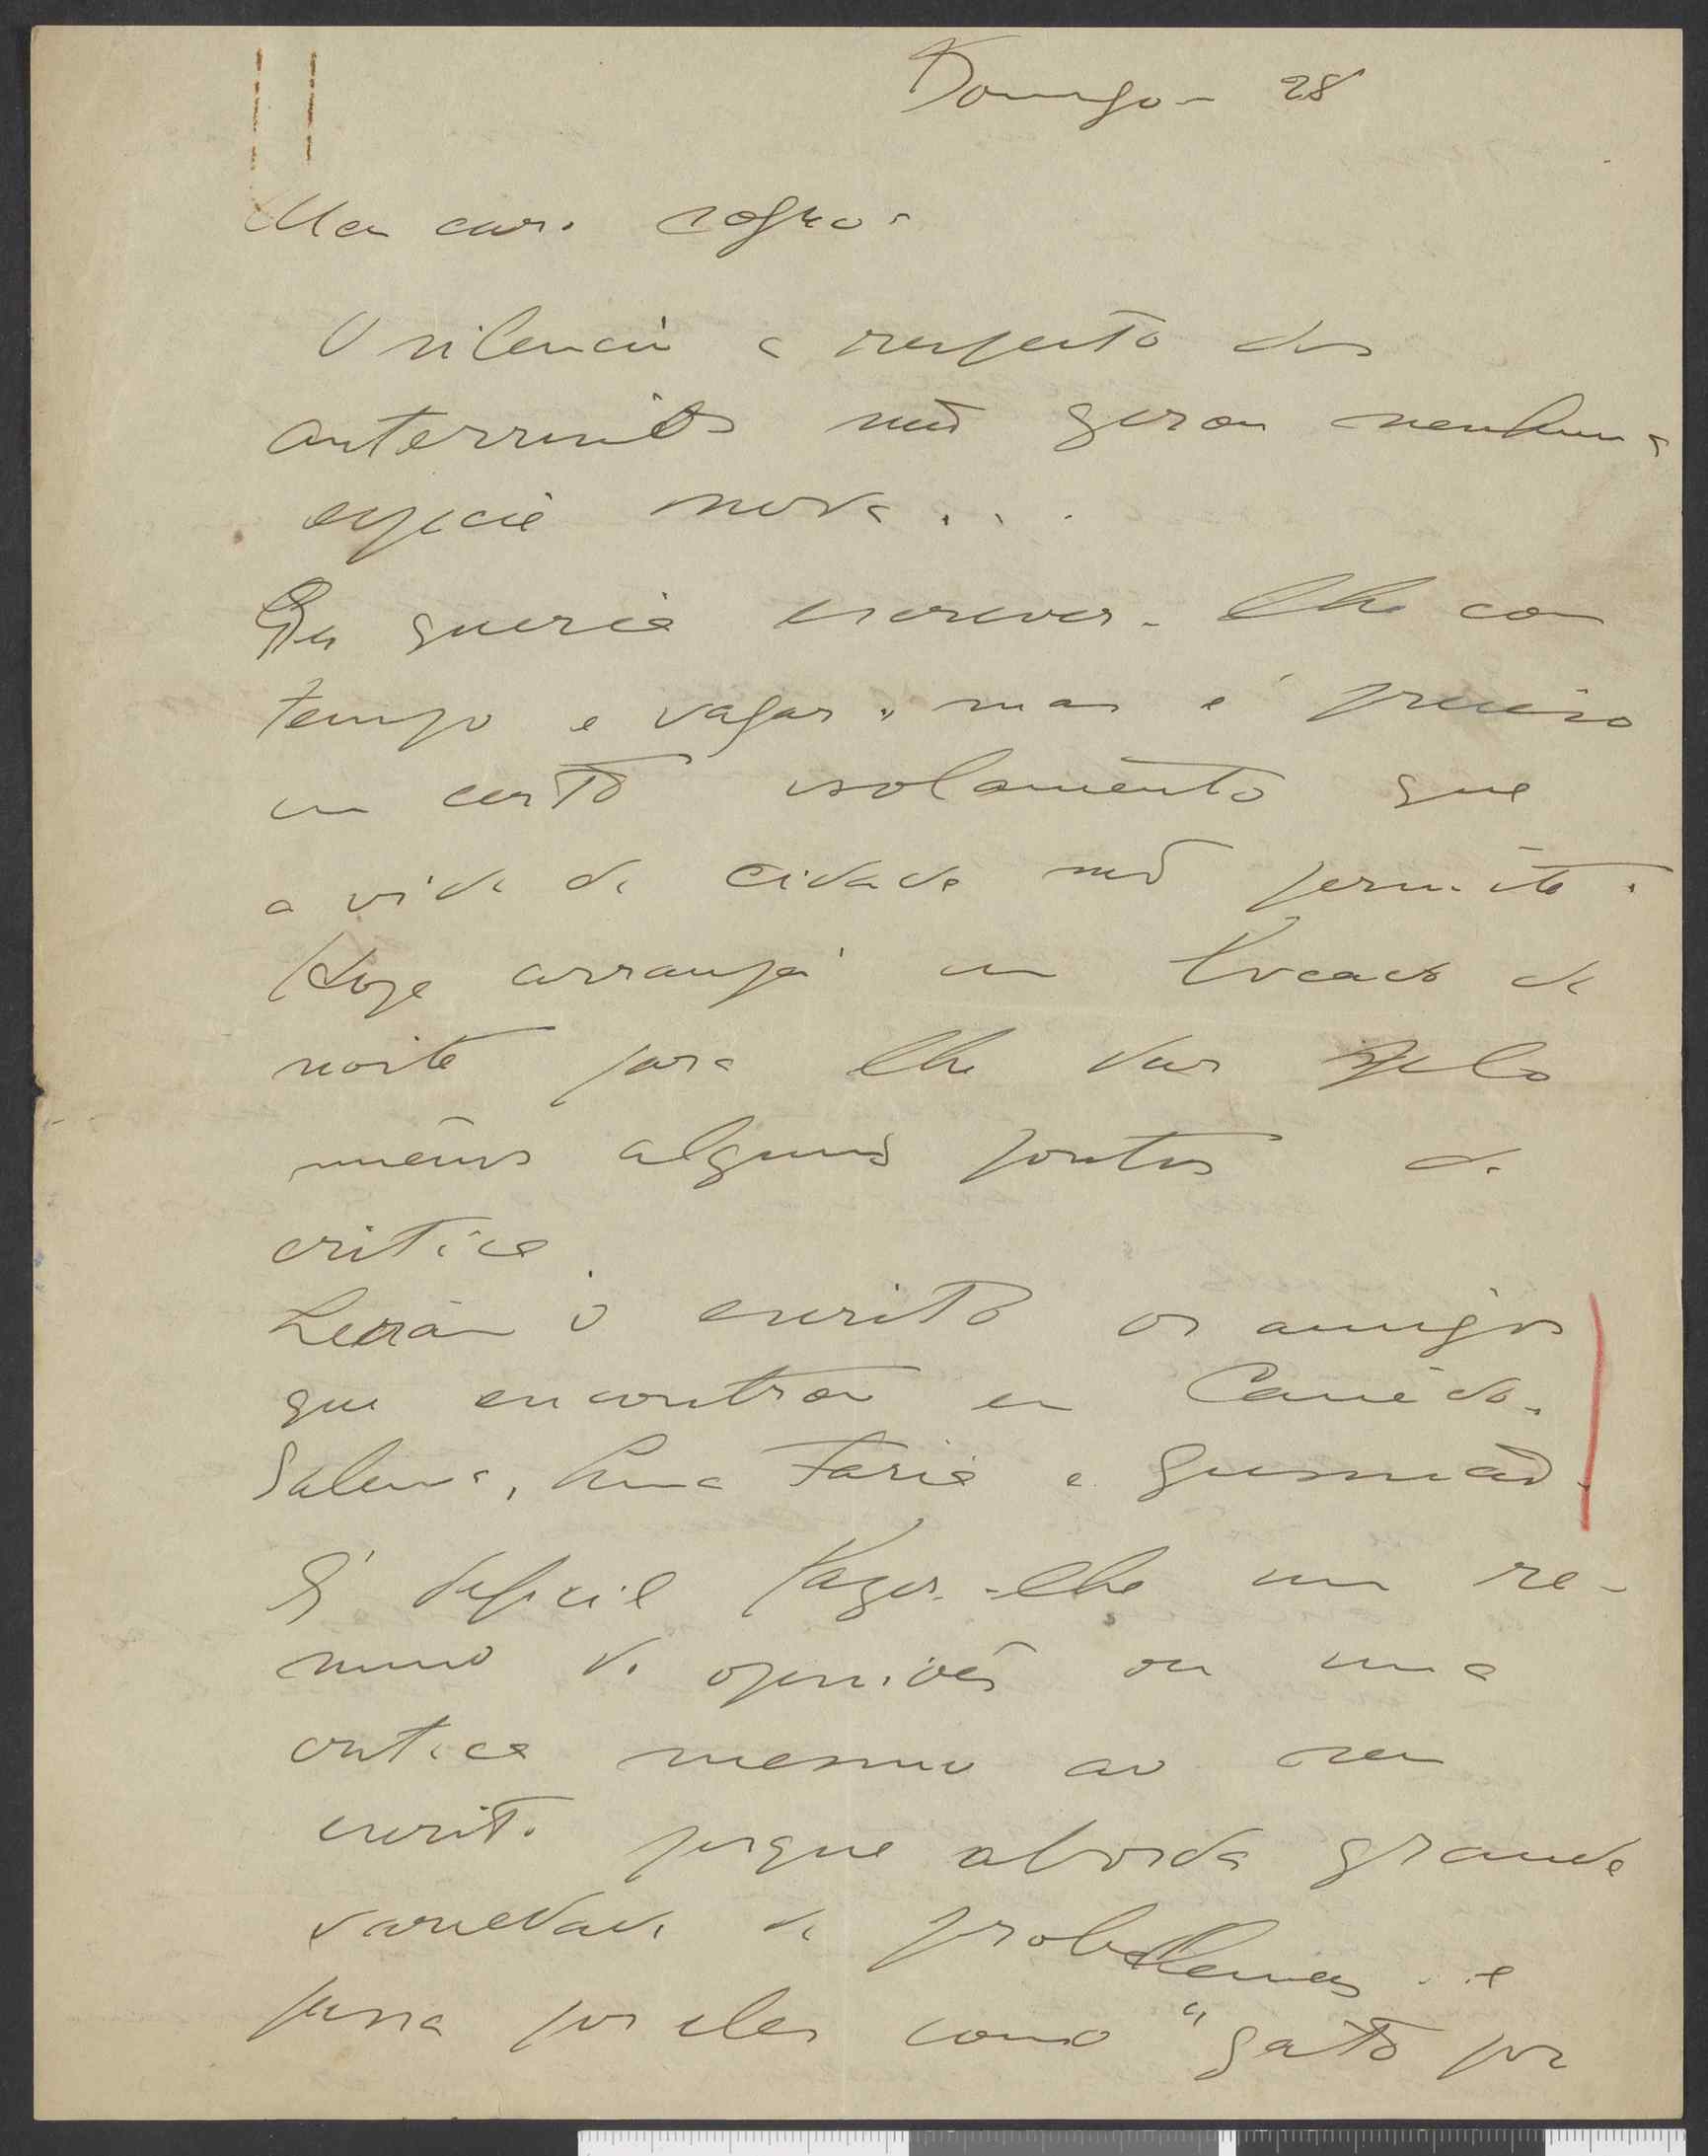 Domingo - 28
Meu caro
O silencio a respeito dos
não gerou nenhuma
especie nova...
Eu queria escrever-lhe com
tempo e vagar, mas é preciso
um certo isolamento que
a vida da cidade não permite.
Hoje arranjei um bocado da
noite para lhe dar pelo
menos alguns pontos de
critica.
Leram o escrito os amigos
que encontrou em Canêdo.
Salema, Lima Faria e Gusmão.
É dificil fazer-lhe um re-
sumo de opiniões ou uma
critica mesmo ao seu
escrito porque aborda grande
variedade de problemas e
passa por eles como "gato por